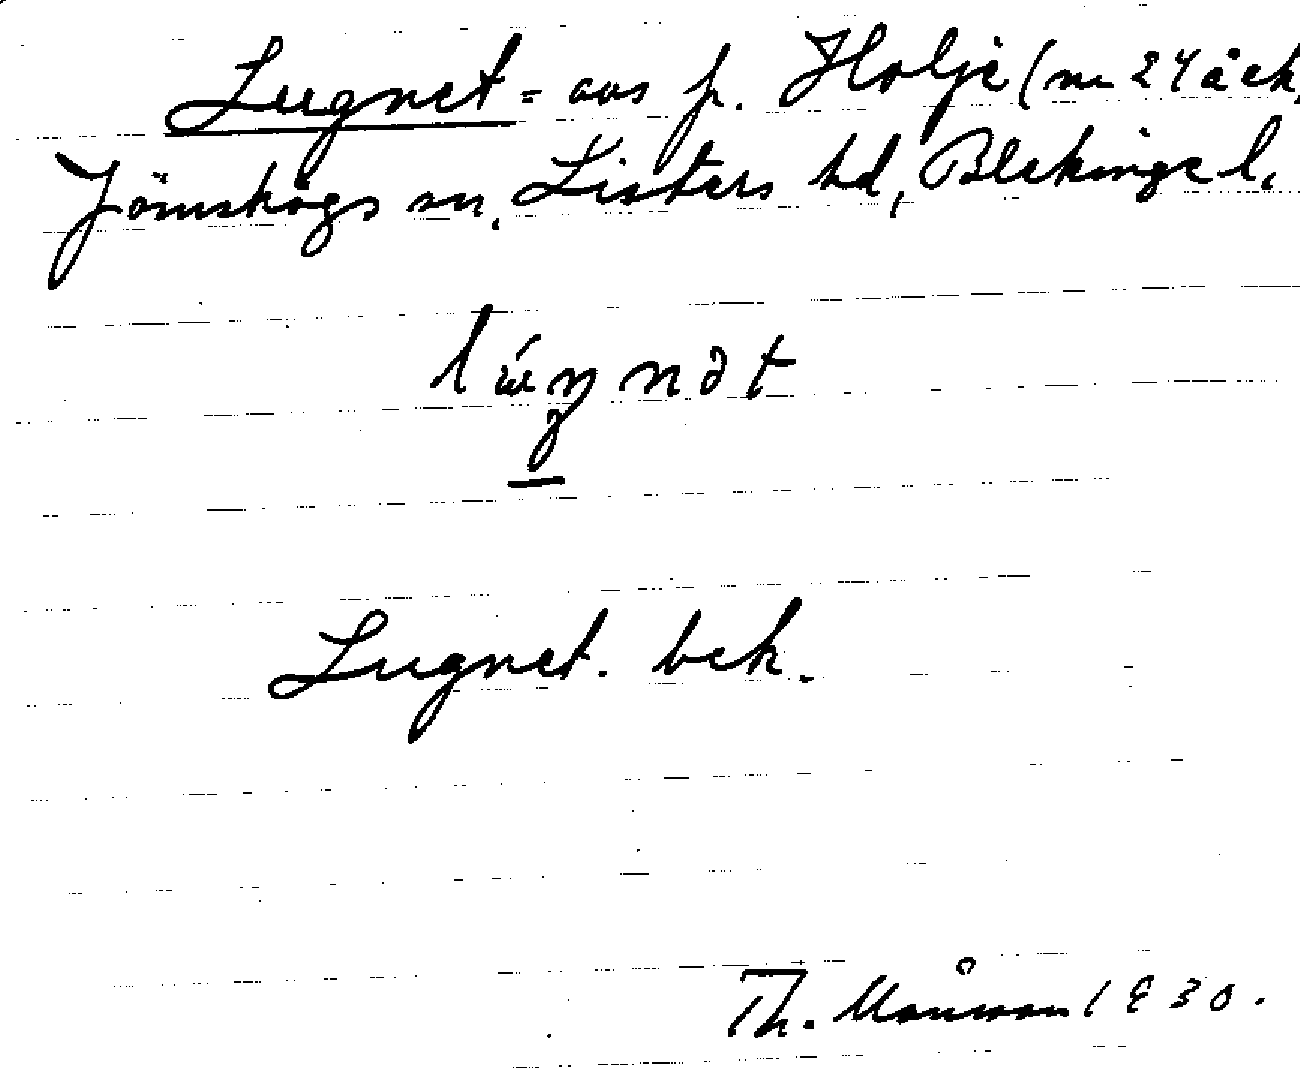 Lugnet = avs p. Holje (nr 24 åek,
Jämshögs sn, Listers hd, Blekinge l.
lúŋnət
Lugnet. bek.
Th. Månsson 1930.